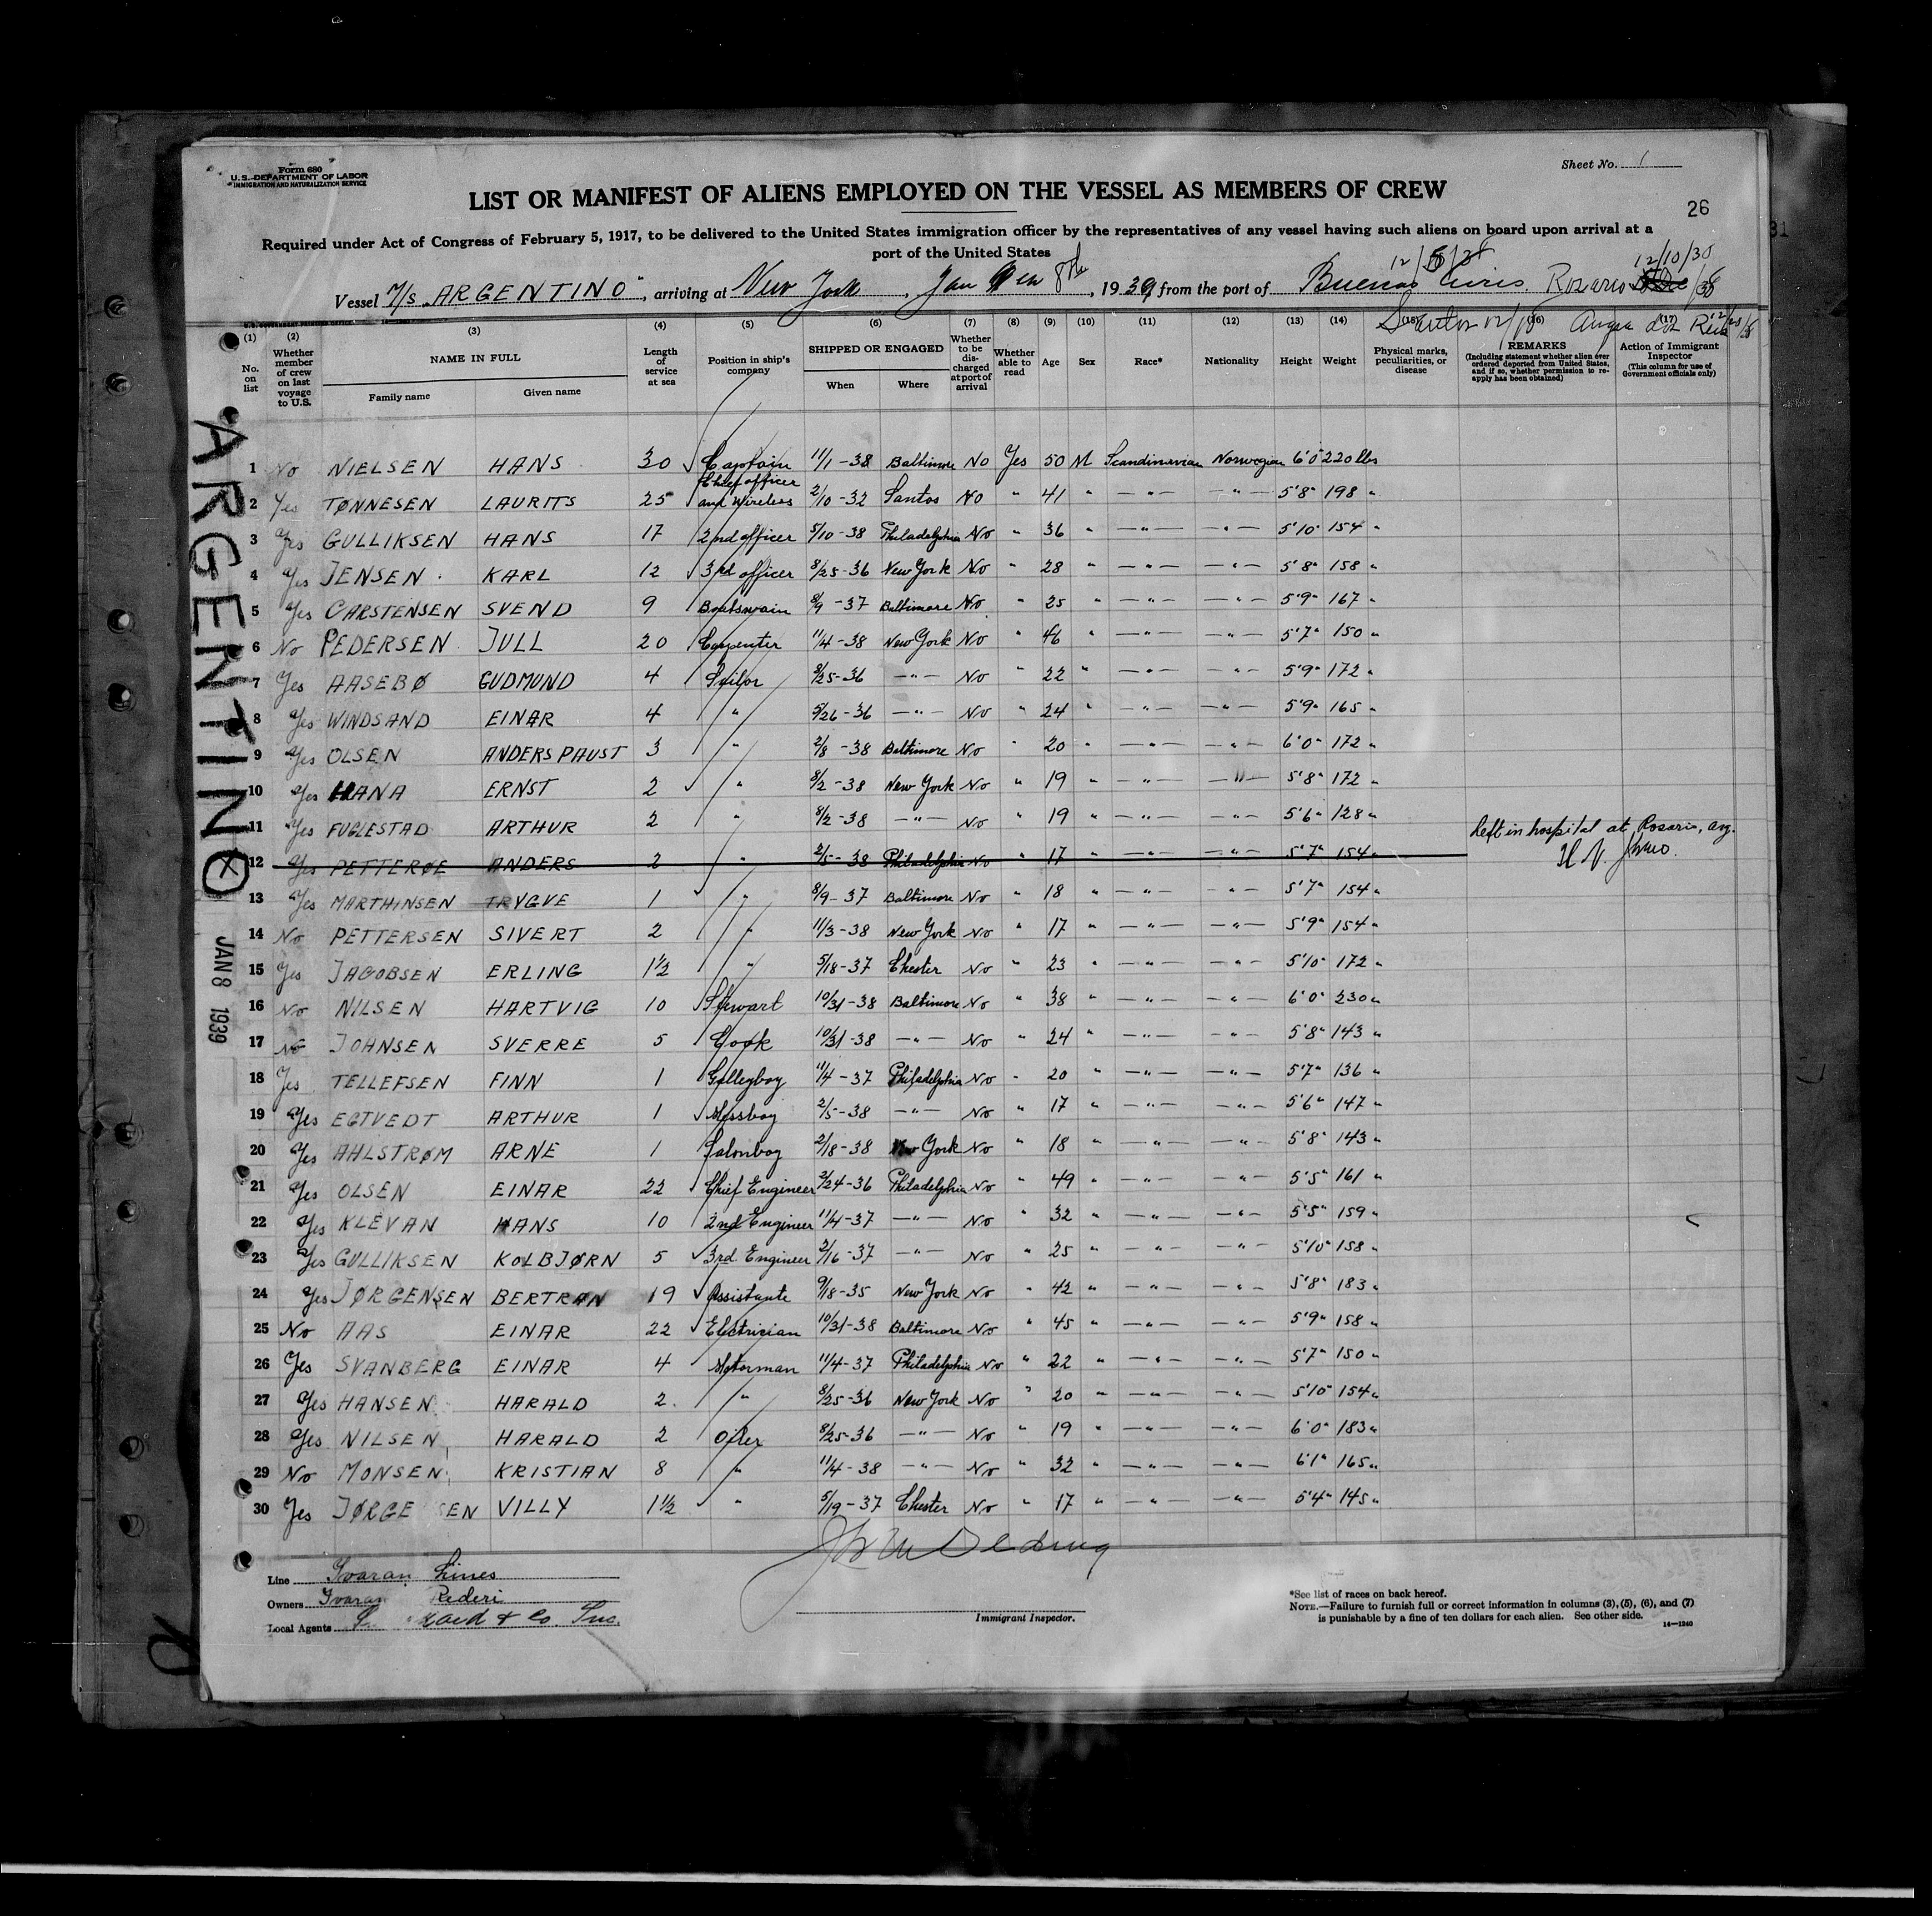 Form 680
U.S. DEPARTMENT OF LABOR
IMMIGRATION AND NATURALIZATION SERVICE
Sheet No. 1
LIST OR MANIFEST OF ALIENS EMPLOYED ON THE VESSEL AS MEMBERS OF CREW
26
Required under Act of Congress of February 5, 1917, to be delivered to the United States immigration officer by the representatives of any vessel having such aliens on board upon arrival at a
port of the United States
12/10/38
Vessel M/S "ARGENTINO", arriving at New York, Jan 8th, 1939 from the port of Buenos Aires. Rosario
Santos 12/18 Angra dos Reis
(1) (2) (3) (4) (5) (6) (7) (8) (9) (10) (11) (12) (13) (14) (15) (16) (17)
No. on list
Whether member of crew on last voyage to U.S.
NAME IN FULL
Family name
Given name
Length of service at sea
Position in ship's company
SHIPPED OR ENGAGED
When
Where
Whether to be discharged at port of arrival
Whether able to read
Age
Sex
Race*
Nationality
Height
Weight
Physical marks, peculiarities, or disease
REMARKS
(Including statement whether alien ever ordered deported from United States, and if so, whether permission to reapply has been obtained)
Action of Immigrant Inspector
(This column for use of Government officials only)
ARGENTINO
X
JAN 8 1939
1 No NIELSEN HANS 30 Captain 11/1-38 Baltimore No Yes 50 M Scandinavian Norwegian 6'0" 220 lbs
2 Yes TØNNESEN LAURITS 25 Chief officer and Wireless 2/10-32 Santos No " 41 " -"- -"- 5'8" 198 "
3 Yes GULLIKSEN HANS 17 2nd officer 5/10-38 Philadelphia No " 36 " -"- -"- 5'10" 154 "
4 Yes JENSEN KARL 12 3rd officer 8/25-36 New York No " 28 " -"- -"- 5'8" 158 "
5 Yes CARSTENSEN SVEND 9 Boatswain 8/9-37 Baltimore No " 25 " -"- -"- 5'9" 167 "
6 No PEDERSEN JULL 20 Carpenter 11/4-38 New York No " 46 " -"- -"- 5'7" 150 "
7 Yes AASEBØ GUDMUND 4 Sailor 8/25-36 -"- No " 22 " -"- -"- 5'9" 172 "
8 Yes WINDSAND EINAR 4 " 5/26-36 -"- No " 24 " -"- -"- 5'9" 165 "
9 Yes OLSEN ANDERS PAUST 3 " 2/8-38 Baltimore No " 20 " -"- -"- 6'0" 172 "
10 Yes HANA ERNST 2 " 8/2-38 New York No " 19 " -"- -"- 5'8" 172 "
11 Yes FUGLESTAD ARTHUR 2 " 8/2-38 -"- No " 19 " -"- -"- 5'6" 128 "
12 Yes PETTERØE ANDERS 2 " 2/5-38 Philadelphia No " 17 " -"- -"- 5'7" 154 " Left in hospital at Rosario, Arg.
13 Yes MARTHINSEN TRYGVE 1 " 8/9-37 Baltimore No " 18 " -"- -"- 5'7" 154 "
14 No PETTERSEN SIVERT 2 " 11/3-38 New York No " 17 " -"- -"- 5'9" 154 "
15 Yes JAGOBSEN ERLING 1½ " 5/18-37 Chester No " 23 " -"- -"- 5'10" 172 "
16 No NILSEN HARTVIG 10 Stewart 10/31-38 Baltimore No " 38 " -"- -"- 6'0" 230 "
17 No JOHNSEN SVERRE 5 Cook 10/31-38 -"- No " 24 " -"- -"- 5'8" 143 "
18 Yes TELLEFSEN FINN 1 Galleyboy 11/4-37 Philadelphia No " 20 " -"- -"- 5'7" 136 "
19 Yes EGTVEDT ARTHUR 1 Messboy 2/5-38 -"- No " 17 " -"- -"- 5'6" 147 "
20 Yes AHLSTRØM ARNE 1 Salonboy 2/18-38 New York No " 18 -"- -"- 5'8" 143 "
21 Yes OLSEN EINAR 22 Chief Engineer 2/24-36 Philadelphia No " 49 " -"- -"- 5'5" 161 "
22 Yes KLEVAN HANS 10 2nd Engineer 11/4-37 -"- No " 32 " -"- -"- 5'5" 159 "
23 Yes GULLIKSEN KOLBJØRN 5 3rd Engineer 2/16-37 -"- No " 25 " -"- -"- 5'10" 158 "
24 Yes JØRGENSEN BERTRAN 19 Assistante 9/18-35 New York No " 42 " -"- -"- 5'8" 183 "
25 No AAS EINAR 22 Electrician 10/31-38 Baltimore No " 45 " -"- -"- 5'9" 158 "
26 Yes SVANBERG EINAR 4 Motorman 11/4-37 Philadelphia No " 22 " -"- -"- 5'7" 150 "
27 Yes HANSEN HARALD 2 " 8/25-36 New York No " 20 " -"- -"- 5'10" 154 "
28 Yes NILSEN HARALD 2 Oiler 8/25-36 -"- No " 19 " -"- -"- 6'0" 183 "
29 No MONSEN KRISTIAN 8 " 11/4-38 -"- No " 32 " -"- -"- 6'1" 165 "
30 Yes JØRGE SEN VILLY 1½ " 5/19-37 Chester No " 17 " -"- -"- 5'4" 145 "
Line Ivaran Lines
Owners Ivaran Rederi
Local Agents & Co. Inc.
Immigrant Inspector.
*See list of races on back hereof.
NOTE.—Failure to furnish full or correct information in columns (3), (5), (6), and (7)
is punishable by a fine of ten dollars for each alien. See other side.
14—1240